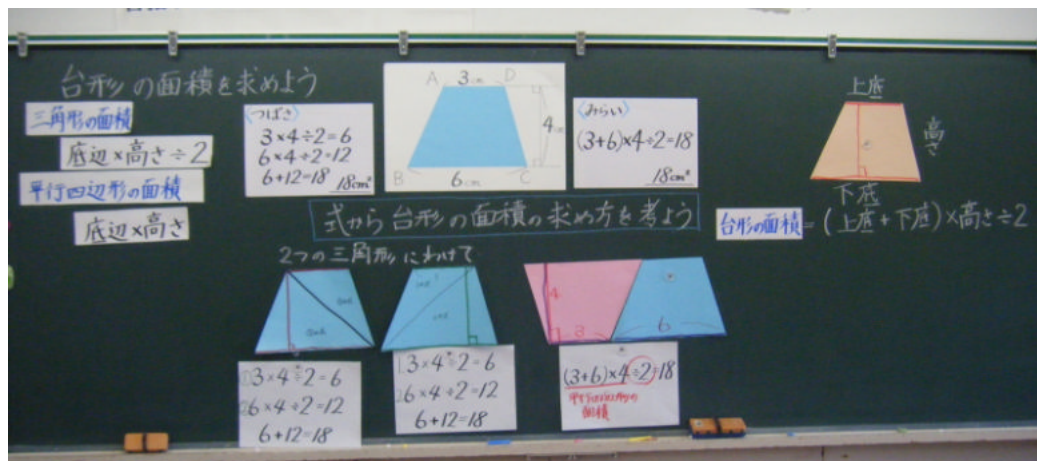 台形の面積を求めよう
三角形の面積
底辺×高さ÷2
平行四辺形の面積
底辺×高さ
〈つばさ〉
3×4÷2=6
6×4÷2=12
6+12=18
18cm²
A 3cm D
4cm
B 6cm C
〈みらい〉
(3+6)×4÷2=18
18cm²
上底
高さ
下底
台形の面積=(上底+下底)×高さ÷2
式から台形の面積の求め方を考よう
2つの三角形にわけて
① 3×4÷2=6
② 6×4÷2=12
6+12=18
1 3×4÷2=6
2 6×4÷2=12
6+12=18
4
3
6
(3+6)×4÷2=18
面積